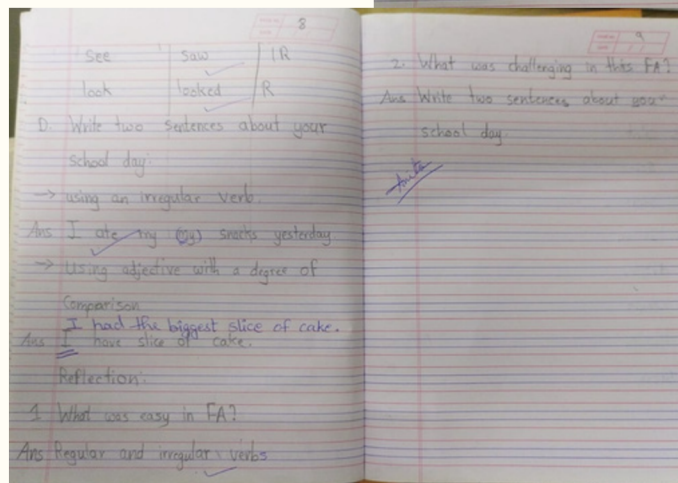 8
see saw IR
look looked R
D. Write two sentences about your
school day.
→ using an irregular verb.
Ans I ate my (my) snacks yesterday
→ Using adjective with a degree of
Comparison
I had the biggest slice of cake.
Ans I have slice of cake.
Reflection:
1. What was easy in FA?
Ans Regular and irregular verbs
9
2. What was challenging in this FA?
Ans Write two sentences about your
school day.